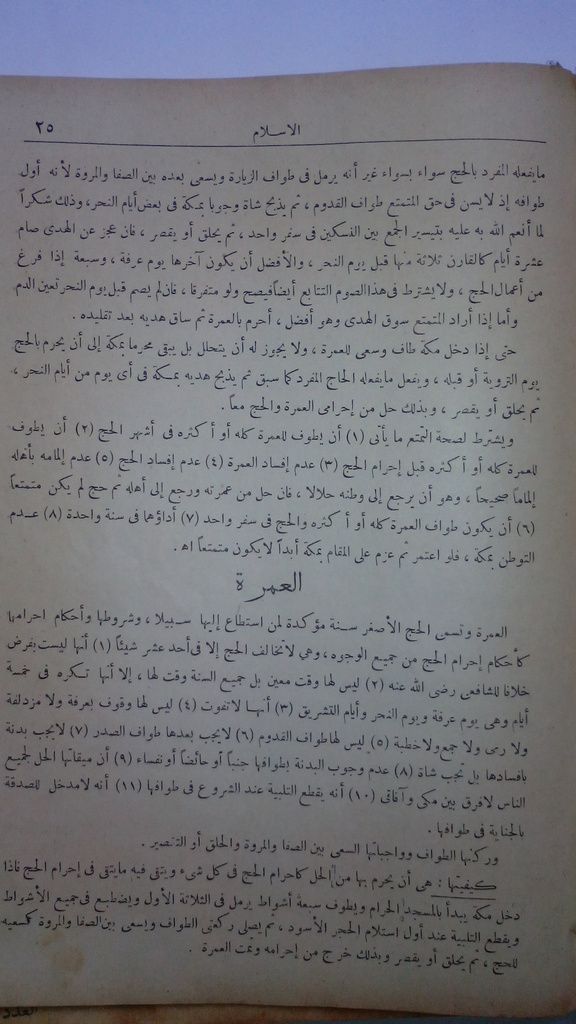 الاسلام ٢٥
مايفعله المفرد بالحج سواء بسواء غير أنه يرمل فى طواف الزيارة ويسعى بعده بين الصفا والمروة لأنه أول
طوافه إذ لايسن فى حق المتمتع طواف القدوم ، ثم يذبح شاة وجوبا بمكة فى بعض أيام النحر، وذلك شكراً
لما أنعم الله به عليه بتيسير الجمع بين النسكين فى سفر واحد ، ثم يحلق أو يقصر ، فان عجز عن الهدى صام
عشرة أيام كالقارن ثلاثة منها قبل يوم النحر ، والأفضل أن يكون آخرها يوم عرفة ، وسبعة إذا فرغ
من أعمال الحج ، ولايشترط فى هذا الصوم التتابع أيضا فيصح ولو متفرقا ، فان لم يصم قبل يوم النحر تعين الدم
وأما إذا أراد المتمتع سوق الهدى وهو أفضل ، أحرم بالعمرة ثم ساق هديه بعد تقليده .
حتى إذا دخل مكة طاف وسعى للعمرة ، ولا يجوز له أن يتحلل بل يبقى محرما بمكة إلى أن يحرم بالحج
يوم التروية أو قبله ، ويفعل مايفعله الحاج المفرد كما سبق ثم يذبح هديه بمكة فى أى يوم من أيام النحر ،
ثم يحلق أو يقصر ، وبذلك حل من إحرامى العمرة والحج معاً .
ويشترط لصحة التمتع ما يأتى (١) أن يطوف للعمرة كله أو أكثره فى أشهر الحج (٢) أن يطوف
للعمرة كله أو أكثره قبل إحرام الحج (٣) عدم إفساد العمرة (٤) عدم إفساد الحج (٥) عدم إلمامه بأهله
إلماما صحيحاً ، وهو أن يرجع إلى وطنه حلالا ، فان حل من عمرته ورجع إلى أهله ثم حج لم يكن متمتعا
(٦) أن يكون طواف العمرة كله أو أكثره والحج فى سفر واحد (٧) أداؤهما فى سنة واحدة (٨) عدم
التوطن بمكة ، فلو اعتمر ثم عزم على المقام بمكة أبداً لايكون متمتعاً اه .
العمرة
العمرة وتسمى الحج الأصغر سنة مؤكدة لمن استطاع إليها سبيلا ، وشروطها وأحكام احرامها
كأحكام إحرام الحج من جميع الوجوه ، وهى لاتخالف الحج إلا فى أحد عشر شيئاً (١) أنها ليست بفرض
خلافا للشافعى رضى الله عنه (٢) ليس لها وقت معين بل جميع السنة وقت لها ، إلا أنها تكره فى خمسة
أيام وهى يوم عرفة ويوم النحر وأيام التشريق (٣) أنها لاتفوت (٤) ليس لها وقوف بعرفة ولا مزدلفة
ولا رمى ولا جمع ولاخطبة (٥) ليس لها طواف القدوم (٦) لايجب بعدها طواف الصدر (٧) لايجب بدنة
بافسادها بل تجب شاة (٨) عدم وجوب البدنة بطوافها جنباً أو حائضاً أو نفساء (٩) أن ميقاتها الحل لجميع
الناس لافرق بين مكى وآفاقى (١٠) أنه يقطع التلبية عند الشروع فى طوافها (١١) أنه لامدخل للصدقة
بالجناية فى طوافها .
وركنها الطواف وواجباتها السعى بين الصفا والمروة والحلق أو التقصير .
كيفيتها : هى أن يحرم بها من الحل كاحرام الحج فى كل شىء ويتقى فيه مايتقى فى إحرام الحج فاذا
دخل مكة يبدأ بالمسجد الحرام ويطوف سبعة أشواط يرمل فى الثلاثة الأول ويضطبع فى جميع الأشواط
ويقطع التلبية عند أول استلام الحجر الأسود ، ثم يصلى ركعتى الطواف ويسعى بين الصفا والمروة كسعيه
للحج ، ثم يحلق أو يقصر وبذلك خرج من إحرامه وتمت العمرة .
العدد